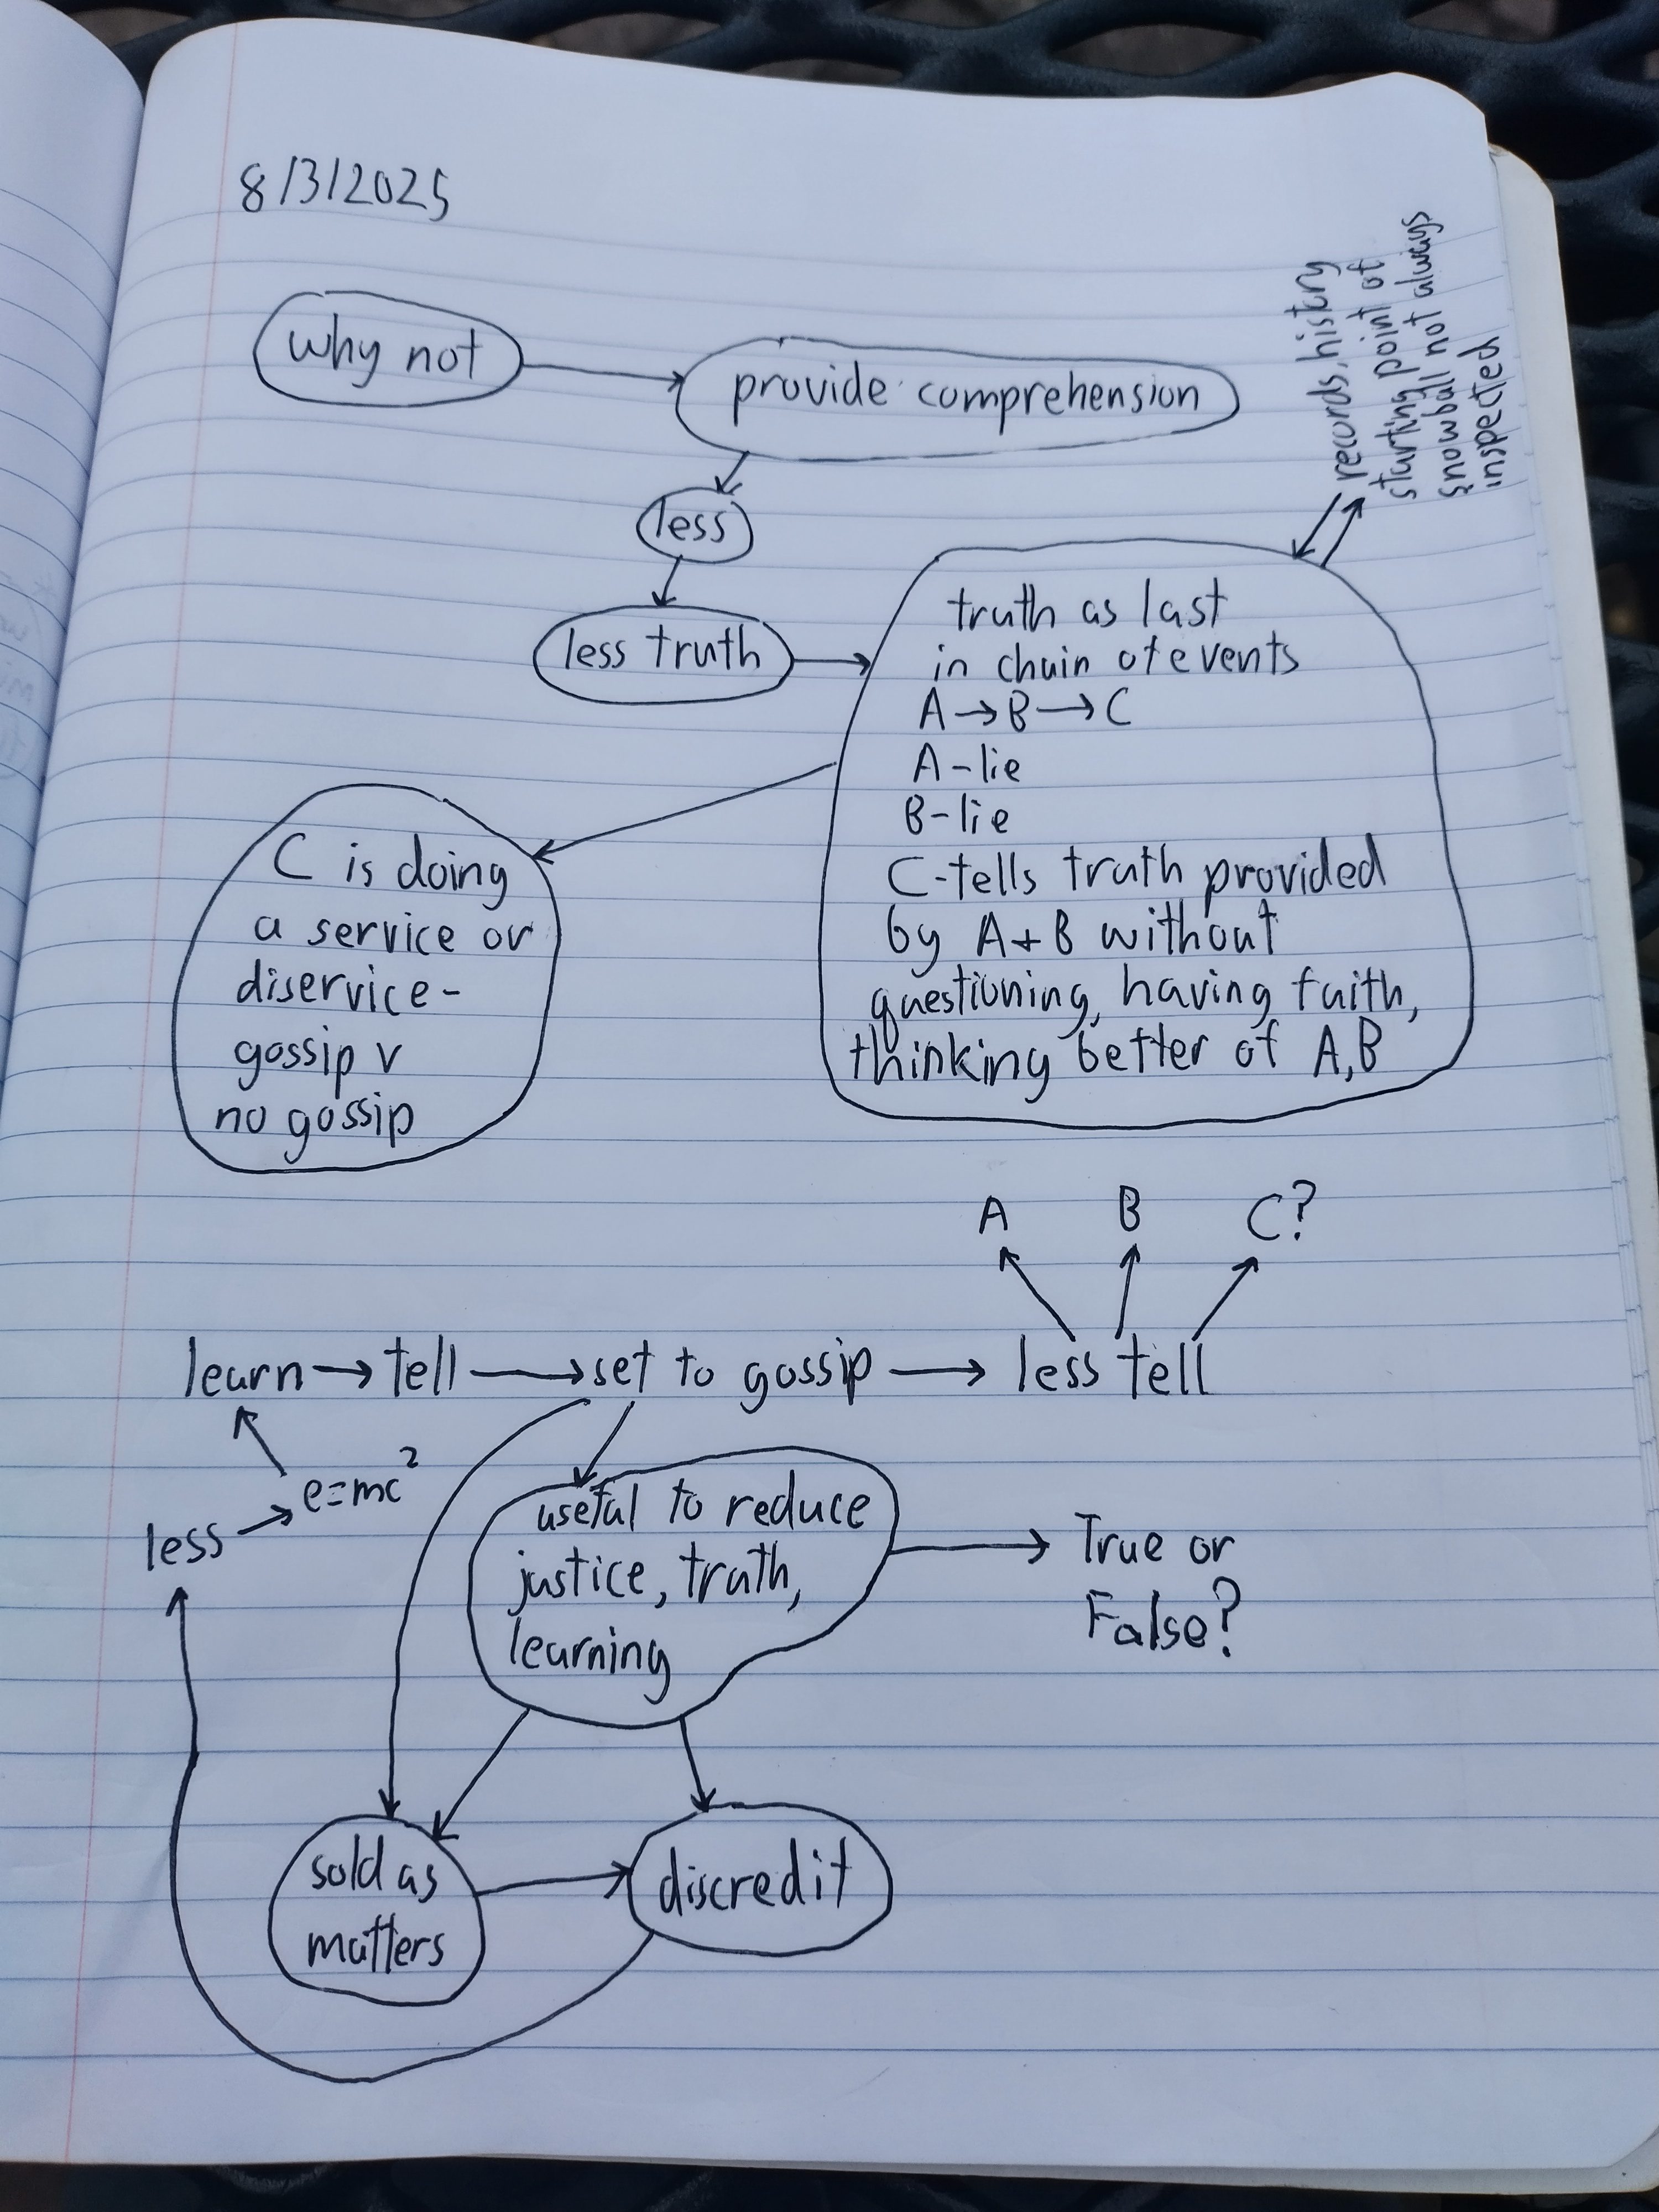 8/3/2025
why not
provide comprehension
records, history
starting point of
snowball not always
inspected
less
less truth
truth as last
in chain of events
A→B→C
A-lie
B-lie
C-tells truth provided
by A+B without
questioning, having faith,
thinking better of A,B
C is doing
a service or
diservice-
gossip v
no gossip
A B C?
learn→tell→set to gossip→less tell
e=mc²
less
useful to reduce
justice, truth,
learning
True or
False?
sold as
matters
discredit